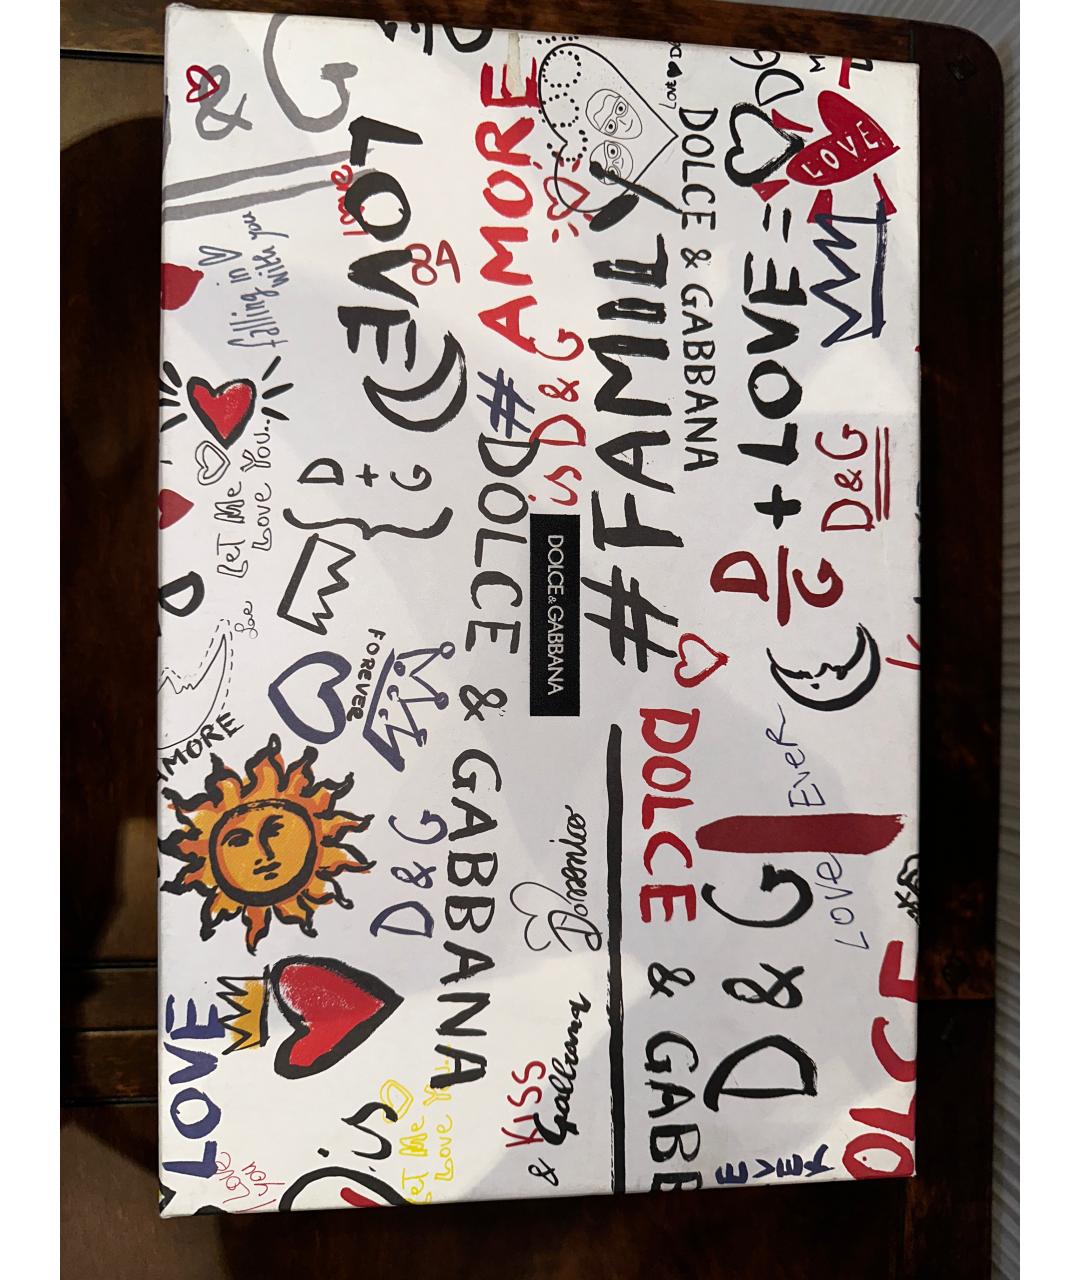 LOVE
D&G
OLCE
LOVE EVER
D
G
+ LOVE =
D & G
DOLCE & GABBANA
LOVE
#FAMILY
DOLCE & GABB
DOLCE & GABBANA
AMORE
is D & G
Domenico
& Gabbana
KISS
#DOLCE & GABBANA
LOVE
D + G
FOREVER
D & G
falling in
with you
LET Me
LOVE YOU...
LET Me
LOVE
AMORE
LOVE
Love
you
&